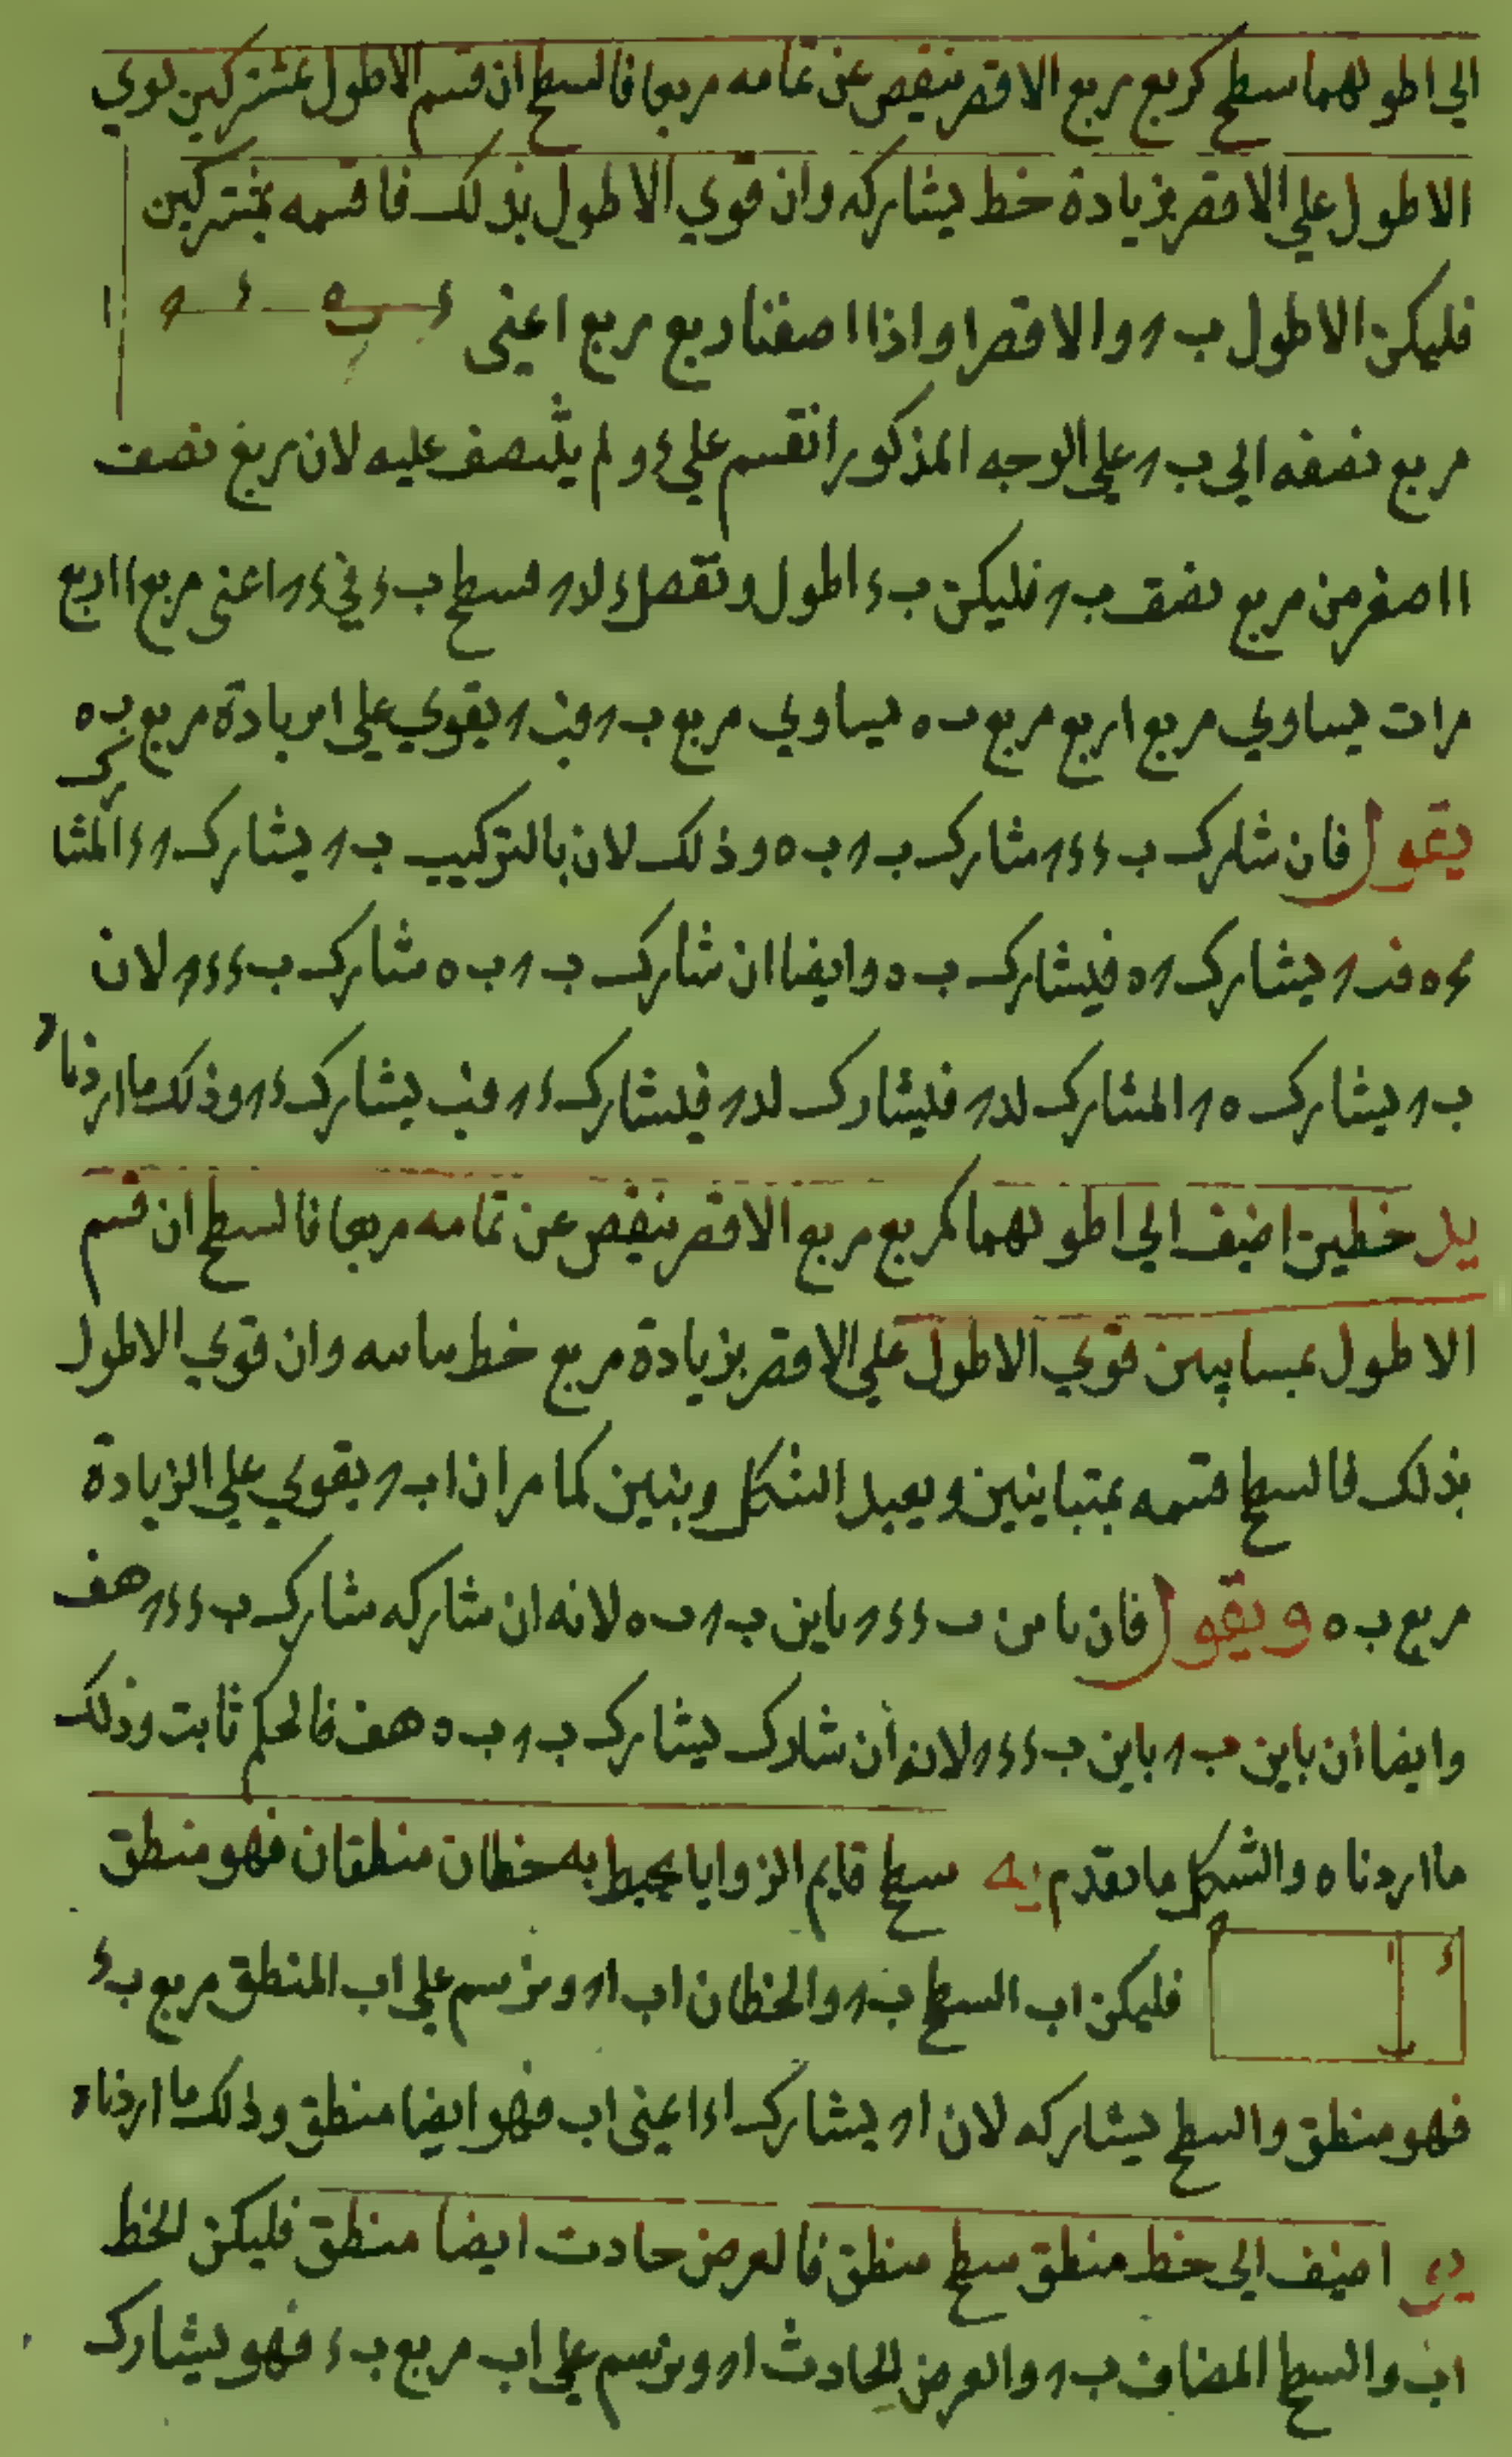 الي اطولهما سطح كربع مربع الاقصر ينقص عن تمامه مربعا فالسطح ان قسم الاطول بمشتركين قوي
الاطول علي الاقصر بزيادة خط يشاركه وان قوي الاطول بذلك فاقسمه بمشتركين
فليكن الاطول ب ر والاقصر ا واذا اضفنا ربع مربع ا عني
مربع نصفه الي ب ر علي الوجه المذكور انقسم علي ء ولم ينتصف عليه لان مربع نصف
ا اصغر من مربع نصف ب ر فليكن ب ء اطول ونفصل ء ه لد ر فسطح ب ء في ء ر اعني مربع ا اربع
مرات يساوي مربع ا ربع مربع ب ه يساوي مربع ب ر فب ر يقوي علي ا بزيادة مربع ب ه
يقول فان شارك ب ء ء ر شارك ب ر ب ه وذلك لان بالتركيب ب ر يشارك ر ء المشارك
ء ه فب ر يشارك ر ه فيشارك ب ه وايضا ان شارك ب ر ب ه شارك ب ء ء ر لان
ب ر يشارك ه ر المشارك لد ر فيشارك لد ر فيشارك ء ر فب يشارك ء ر وذلك ما اردناه
يد خطين اضيف الي اطولهما كربع مربع الاقصر ينقص عن تمامه مربعا فالسطح ان قسم
الاطول بمتباينين قوي الاطول علي الاقصر بزيادة مربع خط يباينه وان قوي الاطول
بذلك فالسطح قسمه بمتباينين ويعيد الشكل ونبين كما مر ان ا ب ر يقوي علي الزيادة
مربع ب ه ويقول فان باين ب ء ء ر باين ب ر ب ه لانه ان شاركه شارك ب ء ء ر هف
وايضا ان باين ب ر باين ب ء ء ر لانه ان شارك يشارك ب ر ب ه هف فالحكم ثابت وذلك
ما اردناه والشكل ما تقدم يه سطح قايم الزوايا يحيط به خطان منطقان فهو منطق
فليكن اب السطح ب ر والخطان اب ا ر ونرسم علي اب المنطق مربع ب ء
فهو منطق والسطح يشاركه لان ا ر يشارك ا ء اعني اب فهو ايضا منطق وذلك ما اردناه
يو اضيف الي خط منطق سطح منطق فالعرض حادث ايضا منطق فليكن الخط
اب والسطح المضاف ب ر والعرض الحادث ا ر ونرسم علي اب مربع ب ء فهو يشارك